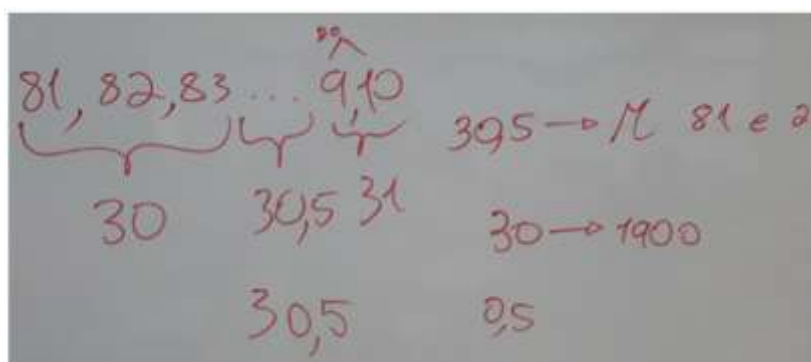 20
81, 82, 83 ... 9,10
30,5 → M 81 e 2
30 30,5 31
30 → 1900
30,5
0,5